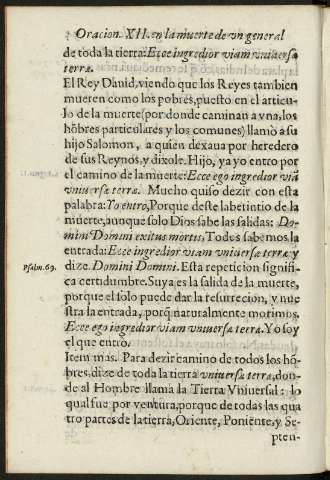 Oracion XII. en la muerte de vn general
de toda la tierra: Ecce ingredior viam vniuersæ
terræ.
El Rey Dauid, viendo que los Reyes tambien
mueren como los pobres, puesto en el articu-
lo de la muerte (por donde caminan a vna, los
hõbres particulares y los comunes) llamò a su
hijo Salomon, a quien dexaua por heredero
de sus Reynos, y dixole. Hijo, ya yo entro por
el camino de la muerte: Ecce ego ingredior viã
vniuersæ terræ. Mucho quiso dezir con esta
palabra: Yo entro, Porque deste laberintio de la
muerte, aunque solo Dios sabe las salidas: Do-
mini Domini exitus mortis, Todos sabemos la
entrada: Ecce ingredior viam vniuersæ terræ y
Psalm. 69.
dize. Domini Domini. Esta repeticion signifi-
ca certidumbre. Suya es la salida de la muerte,
porque el solo puede dar la resurrecion, y nue
stra la entrada, porq̃ naturalmente morimos.
Ecce ego ingredior viam vniuersæ terræ. Yo soy
el que entro.
Item mas. Para dezir camino de todos los hõ-
bres, dize de toda la tierra vniuersæ terræ, don-
de al Hombre llama la Tierra Vniuersal: lo
qual fue por ventura, porque de todas las qua
tro partes de la tierra, Oriente, Poniente, y Se
pten-